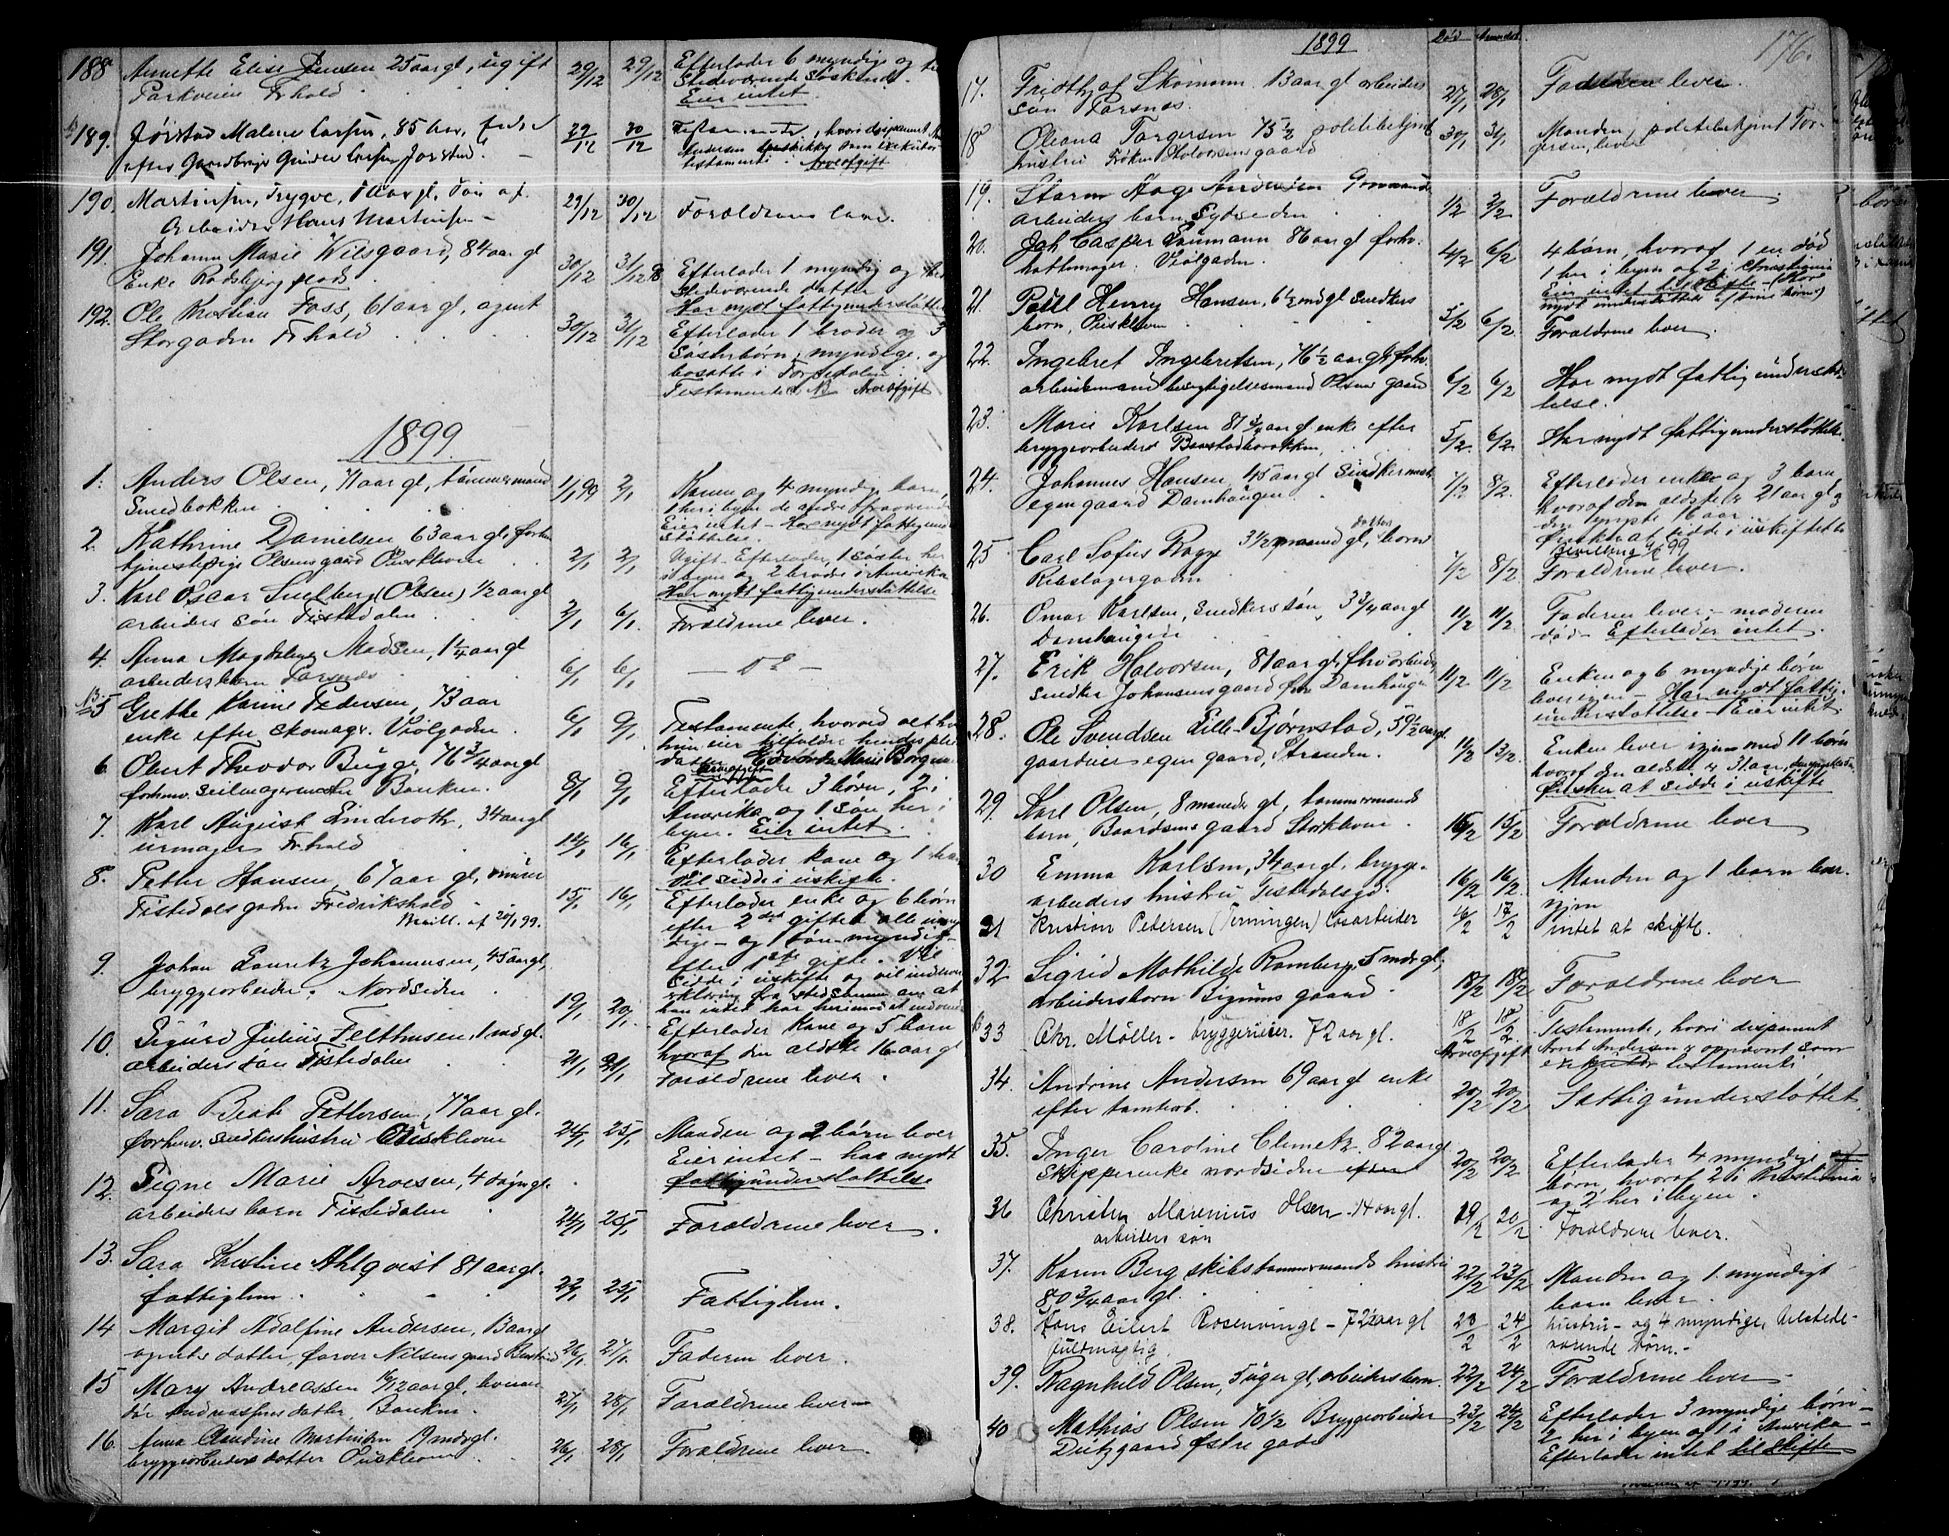 188 Annette Elise Jensen 25 aar gl, ugift 29/12 29/12 Efterlader 6 myndige og
Parkveien Fr.hald tilstedeværende Søskende.
Eier intet.
189. Jørstad Malene Larsen, 85 Aar, 29/12 30/12 Testamente, hvori disponent
efter Gaardbruger Gunder Larsen Jørstad. Andersen som exekutor
testamenti. Arveafgift
190. Martinsen, Trygve, aar gl, Søn af 29/12 30/12 Forældrene leve.
Arbeider Hans Martinsen
191. Johanne Marie Wilsgaard, 84 aar gl 30/12 31/12 98 Efterlader 1 myndig og
Enke Rødsbjerg tilstedeværende datter
Har nydt fattigunderstøttelse
192. Ole Kristian Foss, 61 aar gl, agent 30/12 31/12 Efterlader 1 broder og 3
Storgaden Fr.hald Søsterbørn, myndige, og
bosatte i
Testamente NB Arveafgift
1899.
1. Anders Olsen, 71 aar gl, tømmermand 1/1 99 2/1 Konen og 4 myndig barn,
Svedbakken 1 her i byen de andre fraværende
Eier intet – Har nydt fattigunder
støttelse.
2. Kathrine Danielsen 63 aar gl, forhn 2/1 2/1 Ugift. Efterlader 1 søster her
tjenestepige Olsensgaard Ouskleven i byen og 2 brødre i Amerika
Har nydt fattigunderstøttelse
3. Karl Oscar Snelberg (Olsen) 1/2 aar gl 2/1 6/1 Forældrene lever.
arbeiders søn Tistedalen
4. Anna Magdalena Madsen, 1 1/4 aar gl 6/1 6/1 – do –
arbeidersbarn Torsnæs
5 Grethe Karine Pedersen, 73 aar 6/1 9/1 Testamente, hvorved alt hvad
enke efter skomager. Violgaden. hun eier tilfalder hendes pleie
datter Marie Borgersen
Arveafgift
6. Obert Theodor Bugge, 76 3/4 aar gl 8/1 9/1 Efterlader 3 børn, 2 i
forhenv. seilmagermester Banken. Amerika og 1 søn her i
byen. Eier intet.
7. Karl August Linderoth, 34 aar gl 14/1 16/1 Efterlader kone og 1 barn
urmager Fr.hald Vil sidde i uskifte.
8. Petter Hansen, 67 aar gl, murer 15/1 16/1 Efterlader enke og 6 børn
Tistedalsgaden Fredrikshald efter 2det gifte, alle umyn
Bevill. af 20/1 99. dige – og 1 søn – myndig –
efter 1ste gifte. Vil
sidde i uskifte og vil indlevere
erklæring fra stedsønnen om at
han intet har herimod at indvende
9. Johan Lauritz Johannesen, 45 aar gl, 19/1 20/1 Efterlader kone og 5 barn
bryggearbeider. Nordsiden hvoraf den ældste 16 aar gl
10. Sigurd Julius Felthusen, 1 md gl. 21/1 21/1 Forældrene lever.
arbeiders søn Tistedalen
11. Sara Beate Pettersen, 77 aar gl. 24/1 25/1 Manden og 2 børn lever
forhenv. snedkershustru Ouskleven Eier intet – har nydt
fattigunderstøttelse
12. Signe Marie Arvesen, 4 døgn gl. 24/1 25/1 Forældrene lever.
arbeiders barn Tistedalen
13. Sara Kristine Ahlqvist 81 aar gl. 22/1 25/1 Fattiglem.
fattiglem
14 Margit Adolfine Andersen, aar gl 26/1 27/1 Faderen lever.
datter, farver Nilsens gaard
15 Mary Andreassen 10/12 aar gl, 27/1 28/1 Forældrene lever
Andreassens datter, Banken.
16. Anna Claudine Martinsen 19 mdr gl. 26/1 28/1 Forældrene lever.
bryggearbeiders datter Ouskleven
1899 Død Anmeldt. 176.
17. Fridthjof Skomann. 13 aar gl arbeiders 27/1 28/1 Faderen lever.
søn Torsnæs.
18 Oleana Torgersen 75 1/2 politibetjent 30/1 31/1 Manden, politibetjent Tor-
hustru Frøken Halvorsens gaard gersen, lever
19. Storm Aage Andersen 9 maaneder 1/2 2/2 Forældrene lever.
arbeiders barn Sydsiden
20. Joh. Casper Naumann 86 aar gl forhv. 4/2 6/2 4 børn, hvoraf 1 en død
hattemager. Violgaden. 1 her i byen og 2 i Christiania
Eier intet til skifte – (Have
nydt understøttelse af sine børn)
21. Poul Henry Hansen, 6 1/2 md gl snedkers 5/2 6/2 Forældrene lever.
barn, Ouskleven
22. Ingebret Ingebretsen, 76 1/2 aar gl forhv. 6/2 6/2 Har nydt fattigunderstøt-
arbeidsmand Olsens gaard telse.
23. Marie Karlsen 81 3/4 aar gl enke efter 5/2 6/2 Har nydt fattigunderstøttelse.
bryggearbeider Baastadbrakken
24. Johannes Hansen, 45 aar gl Snedkermester 7/2 8/2 Efterlader enke og 3 barn
egen gaard Damhaugen hvoraf den ældste er 21 aar gl og
den yngste aar
Ønsker at sidde i uskiftet bo
Bevilling 99
25 Carl Sofus Bagge 3 1/2 maaned gl, barn 7/2 8/2 Forældrene lever.
Rebslagergaden
26. Omar Karlsen, Snedkers søn, 3 3/4 aar gl 11/2 11/2 Faderen lever, moderen
Damhaugen død – Efterlader intet.
27. Erik Halvorsen, 81 aar gl, fhv arbeider 11/2 11/2 Enken og 6 myndige børn
snedker Johansens gaard Øvre Damhaugen lever igjen – Har nydt fattig-
understøttelse – Eier intet
28. Ole Svendsen Lille-Bjørnstad, 59 1/2 aar gl 11/2 13/2 Enken lever igjen med 11 børn
gaardeier egen gaard, Stranden. hvoraf den ældste er 31 aar,
Ønsker at sidde i uskifte
29. Karl Olsen, 8 maaneder gl, tømmermands 15/2 15/2 Forældrene lever
barn, Baardsens gaard Storkleven
30 Emma Karlsen, 34 aar gl. brygge- 16/2 16/2 Manden og 1 barn lever
arbeiders hustru Tistedalsgd. igjen
31 Kristian Pedersen (Jerningen) løsarbeider 16/2 17/2 intet at skifte.
32 Sigrid Mathilde Ramberg, 5 mdr gl, 18/2 18/2 Forældrene lever
arbeidersbarn gaard
33 Chr. Møller – bryggerieier. 72 aar gl. 18/2 18/2 Testamente, hvori disponent
Arveafgift Andersen er opnævnt som
exekutor testamenti
34. Andrine Andersen 69 aar gl enke 20/2 20/2 Fattigunderstøttet.
efter tømterarb.
35. Inger Caroline Clemetz. 82 aar gl 20/2 20/2 Efterlader 4 myndige
Skipperenke nordsiden efter børn, hvoraf 2 i Kristiania
og 2 her i byen.
36 Christen Marenius Olsen – 14 aar gl. 19/2 20/2 Forældrene lever.
arbeiders søn
37. Karen Berg skibstømmermands hustru 22/2 23/2 Manden og 1 myndigt
80 3/4 aar gl. barn lever.
38. Jens Eilert Rosenvinge – 72 1/2 aar gl 23/2 24/2 hustru – og 4 myndige, tilstede-
fuldmægtig værende børn. –
39. Ragnhild Olsen, 7 uger gl, arbeidersbarn. 22/2 24/2 Forældrene lever
40 Mathias Olsen 70 1/2 Bryggearbeider 23/2 24/2 Efterlader 3 myndige børn –
Dietzgaard Østre gade 2 her i byen og 1 i Amerika –
Efterlader intet til skifte